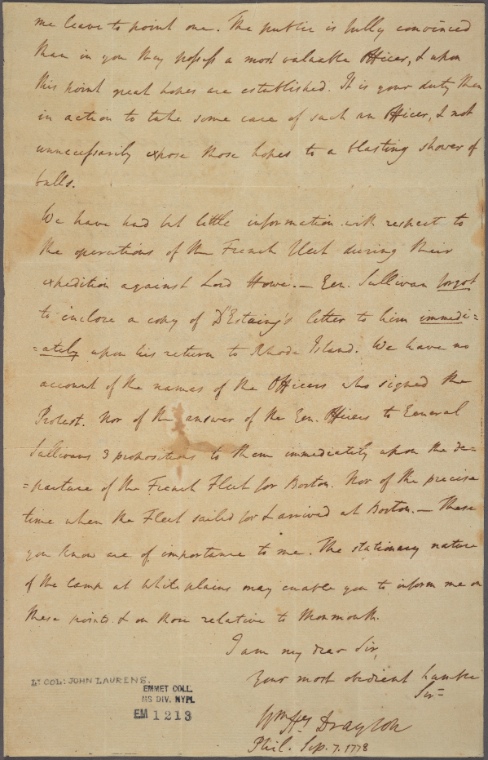 me leave to point one. The public is fully convinced
than in you they possess a most valuable Officer, & upon
this point great hopes are established. It is your duty then
in action to take some care of such an Officer, & not
unnecessarily expose those hopes to a blasting shower of
balls.
We have had but little information with respect to
the operations of the French Fleet during their
expedition against Lord Howe. — Gen. Sullivan forgot
to inclose a copy of D'Estaing's letter to him immedi-
=ately upon his return to Rhode Island. We have no
account of the names of the Officers who signed the
Protest. Nor of the answer of the Gen. Officers to General
Sullivans 3 propositions to them immediately upon the de-
=parture of the French Fleet for Boston. Nor of the precise
time when the Fleet sailed for & arrived at Boston. — These
you know are of importance to me. The stationary nature
of the Camp at White plains may enable you to inform me on
these points & on those relative to Monmouth.
I am my dear Sir,
Your most obedient humble
Ser=
Wm Hy Drayton
Phil. Sep. 7. 1778
Lt COL: JOHN LAURENS.
EMMET COLL.
MS DIV. NYPL
EM 1213